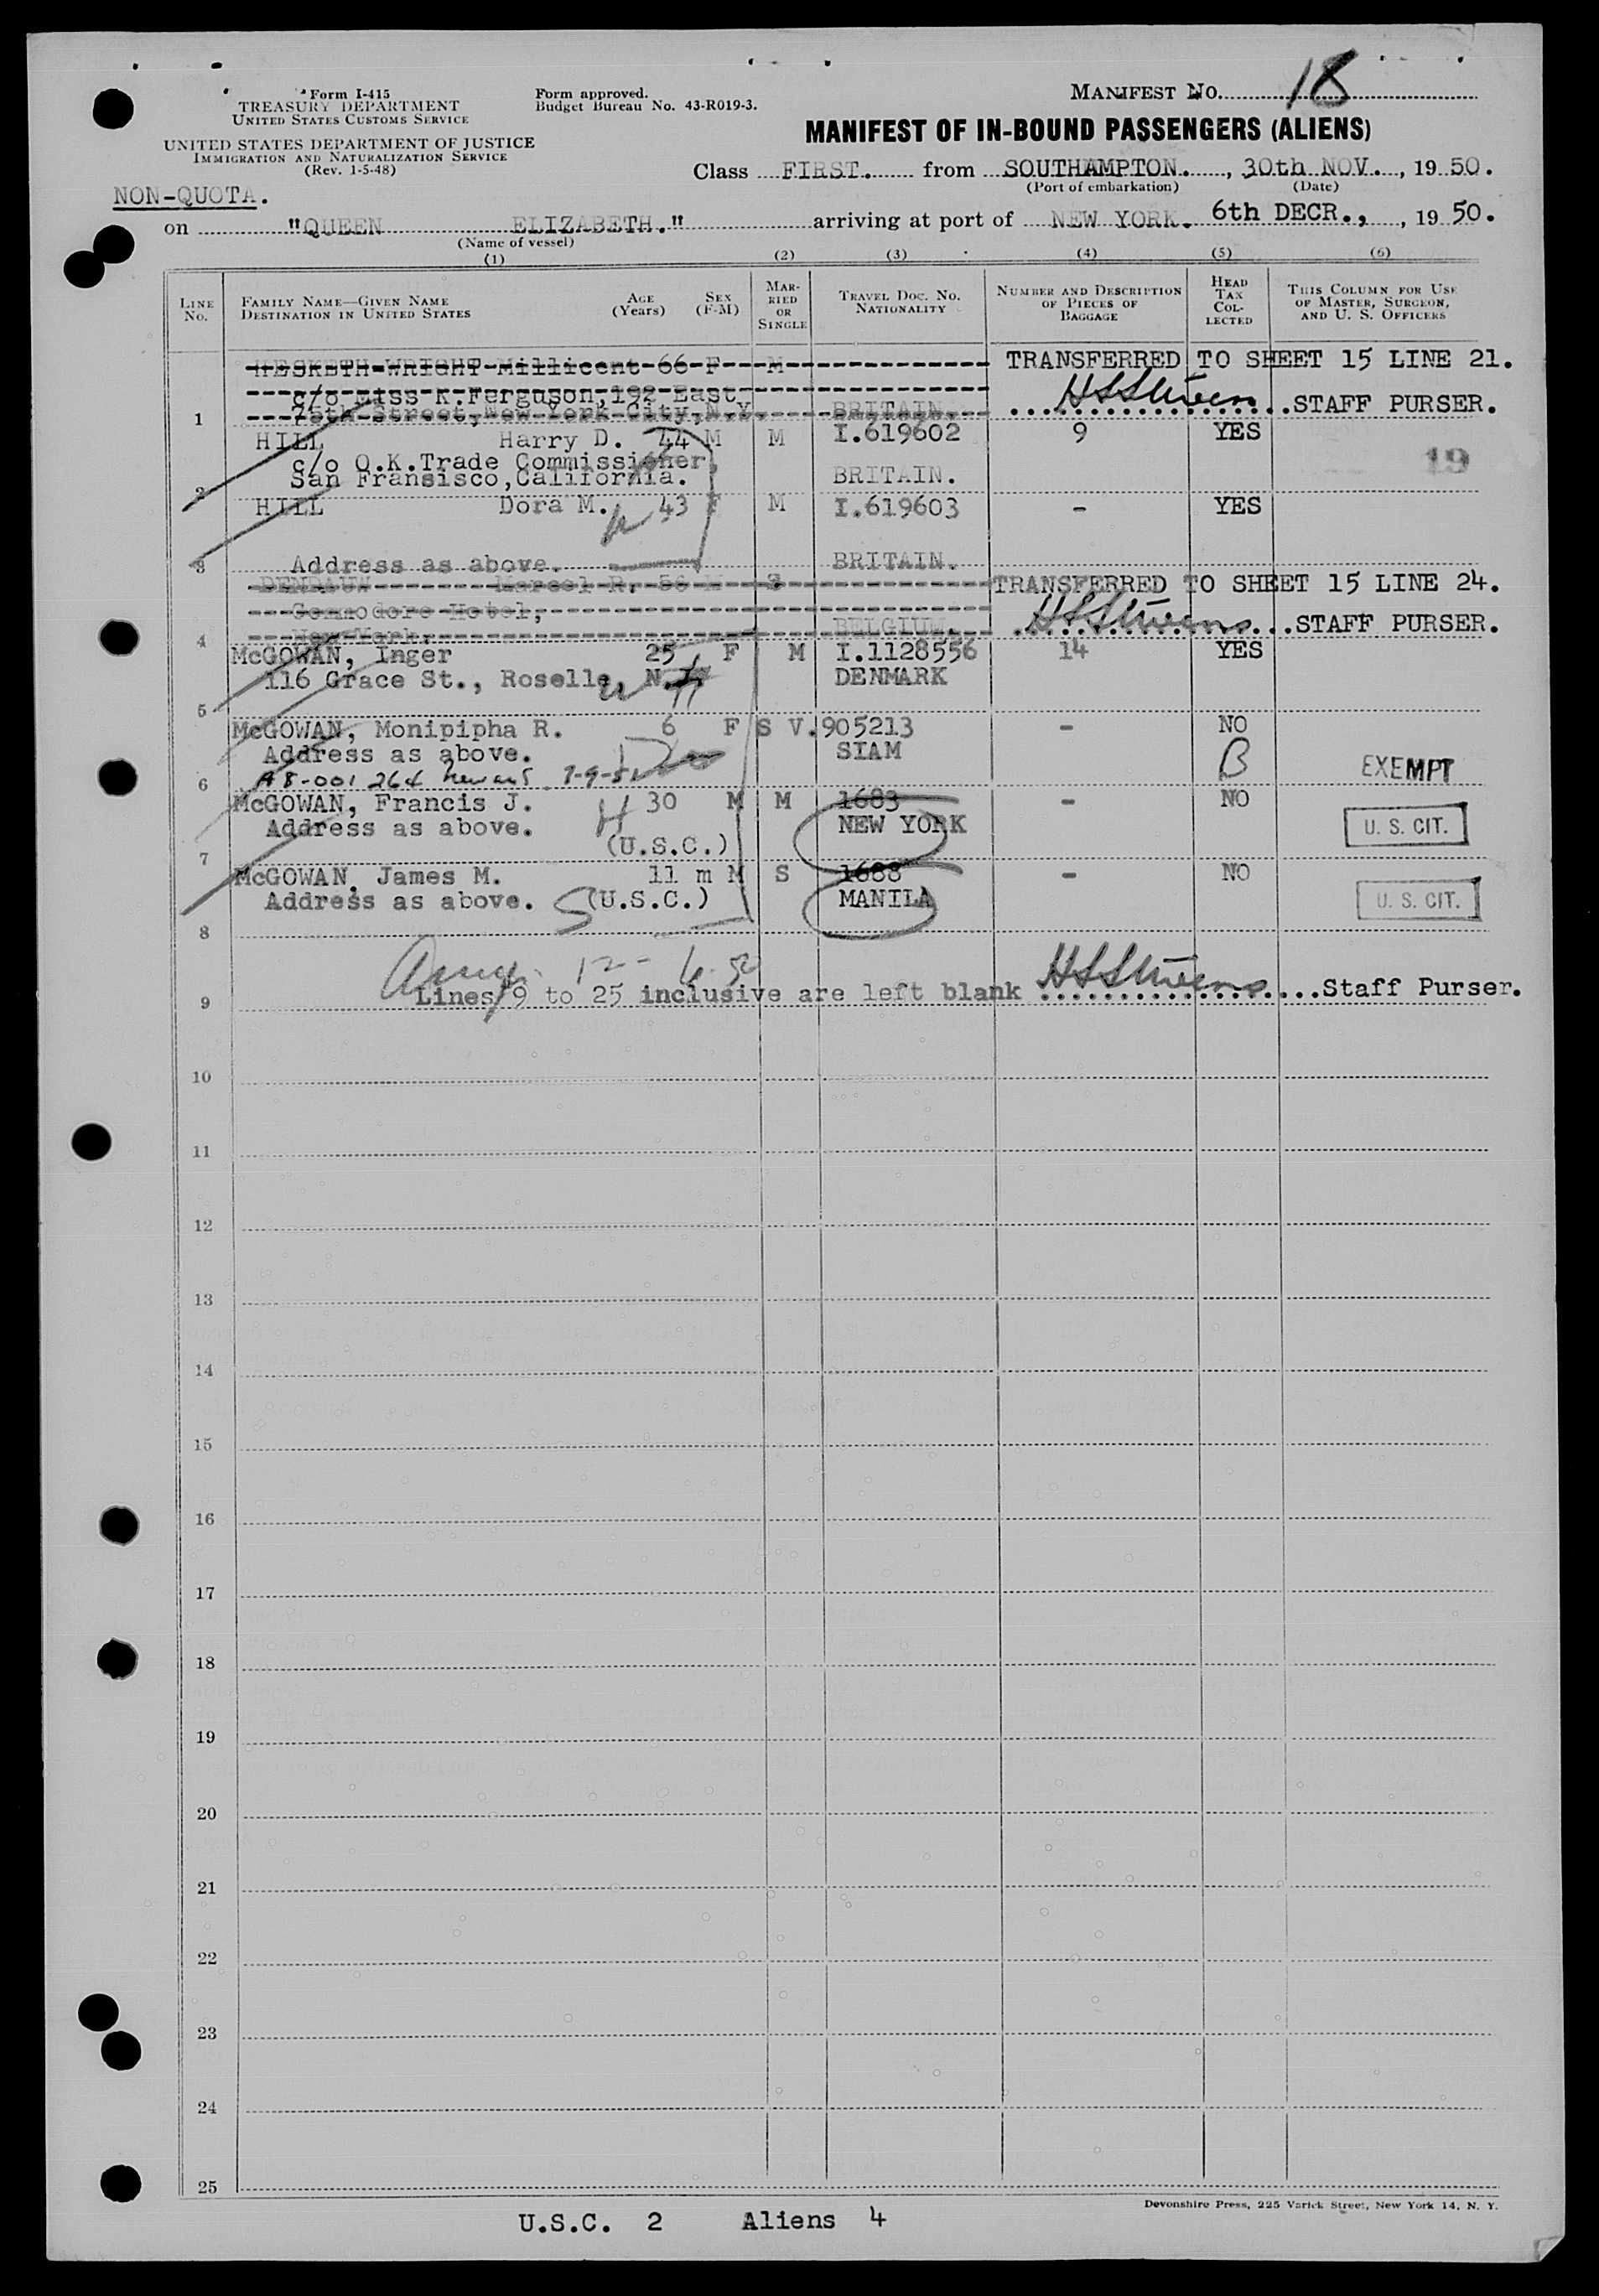 Form I-415
TREASURY DEPARTMENT
UNITED STATES CUSTOMS SERVICE
UNITED STATES DEPARTMENT OF JUSTICE
IMMIGRATION AND NATURALIZATION SERVICE
(Rev. 1-5-48)
Form approved.
Budget Bureau No. 43-R019-3.
MANIFEST NO. 18
MANIFEST OF IN-BOUND PASSENGERS (ALIENS)
Class FIRST. from SOUTHAMPTON. , 30th NOV. , 19 50.
(Port of embarkation) (Date)
NON-QUOTA.
on "QUEEN ELIZABETH." arriving at port of NEW YORK. 6th DECR., , 19 50.
(Name of vessel)
(1) (2) (3) (4) (5) (6)
LINE NO. FAMILY NAME—GIVEN NAME DESTINATION IN UNITED STATES AGE (Years) SEX (F-M) MARRIED OR SINGLE TRAVEL DOC. NO. NATIONALITY NUMBER AND DESCRIPTION OF PIECES OF BAGGAGE HEAD TAX COLLECTED THIS COLUMN FOR USE OF MASTER, SURGEON, AND U. S. OFFICERS
HESKETH-WRIGHT Millicent 66 F M TRANSFERRED TO SHEET 15 LINE 21.
c/o Miss K.Ferguson,192 East
1 75th Street,New York City,N.Y. BRITAIN. HSStivens STAFF PURSER.
HILL Harry D. 44 M M I.619602 9 YES
c/o O.K.Trade Commissioner, 19
2 San Fransisco,California. BRITAIN.
HILL Dora M. 43 F M I.619603 - YES
3 Address as above. BRITAIN.
DENDAUW Marcel R. 56 M S TRANSFERRED TO SHEET 15 LINE 24.
Commodore Hotel,
4 New York. BELGIUM. STAFF PURSER.
McGOWAN, Inger 25 F M I.1128556 14 YES
116 Grace St., Roselle, N.J. DENMARK
5
McGOWAN, Monipipha R. 6 F S V.905213 - NO
Address as above. SIAM B EXEMPT
6 A8-001 264
McGOWAN, Francis J. 30 M M 1683 - NO
Address as above. NEW YORK U. S. CIT.
7 (U.S.C.)
McGOWAN, James M. 11 m M S 1688 - NO
Address as above. (U.S.C.) MANILA U. S. CIT.
8
9 Lines 9 to 25 inclusive are left blank Staff Purser.
10
11
12
13
14
15
16
17
18
19
20
21
22
23
24
25
Devonshire Press, 225 Varick Street, New York 14, N. Y.
U.S.C. 2 Aliens 4